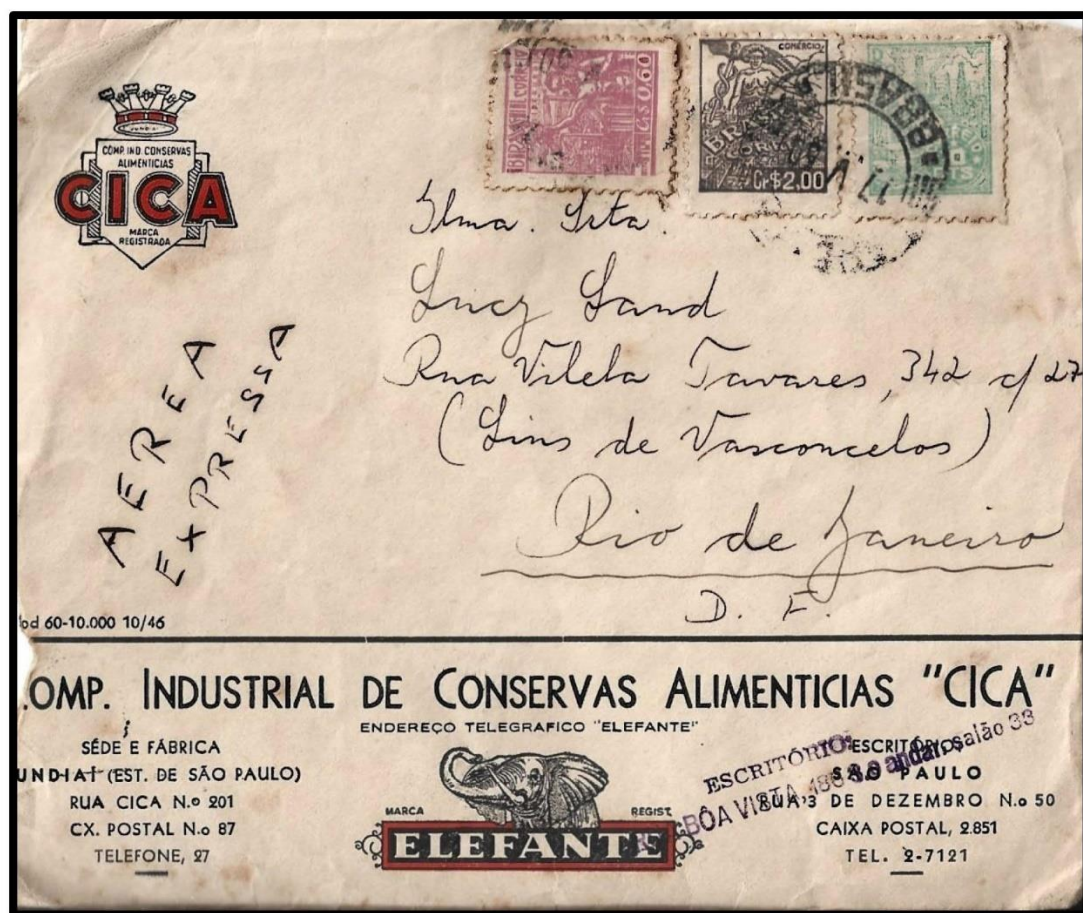 COMP. IND. CONSERVAS
ALIMENTICIAS
CICA
MARCA
REGISTRADA
BRASIL CORREIO
CR$ 0,60
COMÉRCIO
BRASIL
CORREIO
CR$2,00
CTS
BRASIL
17 V 50
Ilma. Srta.
Lucy Sand
Rua Vilela Tavares, 342 c/ 27
(Lins de Vasconcelos)
Rio de Janeiro
D. F.
AEREA
EXPRESSA
od 60-10.000 10/46
OMP. INDUSTRIAL DE CONSERVAS ALIMENTICIAS "CICA"
ENDEREÇO TELEGRAFICO "ELEFANTE"
SÉDE E FÁBRICA
UNDIAÍ (EST. DE SÃO PAULO)
RUA CICA N.o 201
CX. POSTAL N.o 87
TELEFONE, 27
MARCA REGIST.
ELEFANTE
ESCRITÓRIO:
BÔA VISTA, 186 3.o andar, salão 33
ESCRITÓRIOS
SÃO PAULO
RUA 3 DE DEZEMBRO N.o 50
CAIXA POSTAL, 2.851
TEL. 2-7121